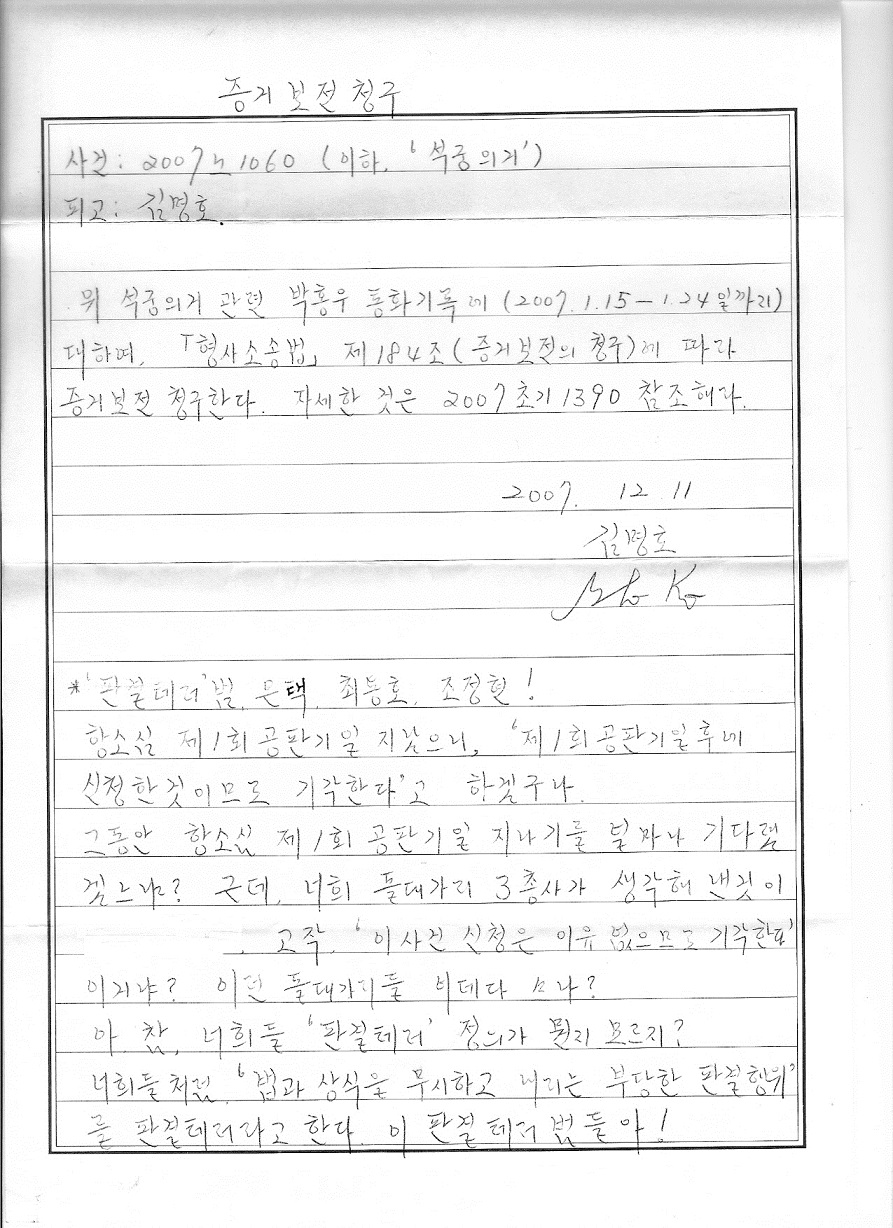 증거보전청구
사건: 2007노1060 (이하, '석궁의거')
피고: 김명호.
위 석궁의거 관련 박홍우 통화기록에 (2007.1.15 - 1.24일까지)
대하여, 「형사소송법」 제184조 (증거보전의 청구)에 따라
증거보전 청구한다. 자세한 것은 2007초기1390 참조해라.
2007. 12. 11
김명호
* '판결테러'범, 은택, 최동호, 조정현!
항소심 제1회 공판기일 지났으니, '제1회 공판기일 후에
신청한 것이므로 기각한다'고 하겠구나.
그동안 항소심 제1회 공판기일 지나기를 얼마나 기다렸
겠느냐? 근데, 너희 돌대가리 3총사가 생각해 낸것이
고작, '이 사건 신청은 이유 없으므로 기각한다'
이거냐? 이런 돌대가리들 어데다 쓰나?
아 참, 너희들 '판결테러' 정의가 뭔지 모르지?
너희들처럼, '법과 상식을 무시하고 내리는 부당한 판결행위'
를 판결테러라고 한다. 이 판결테러범들아!